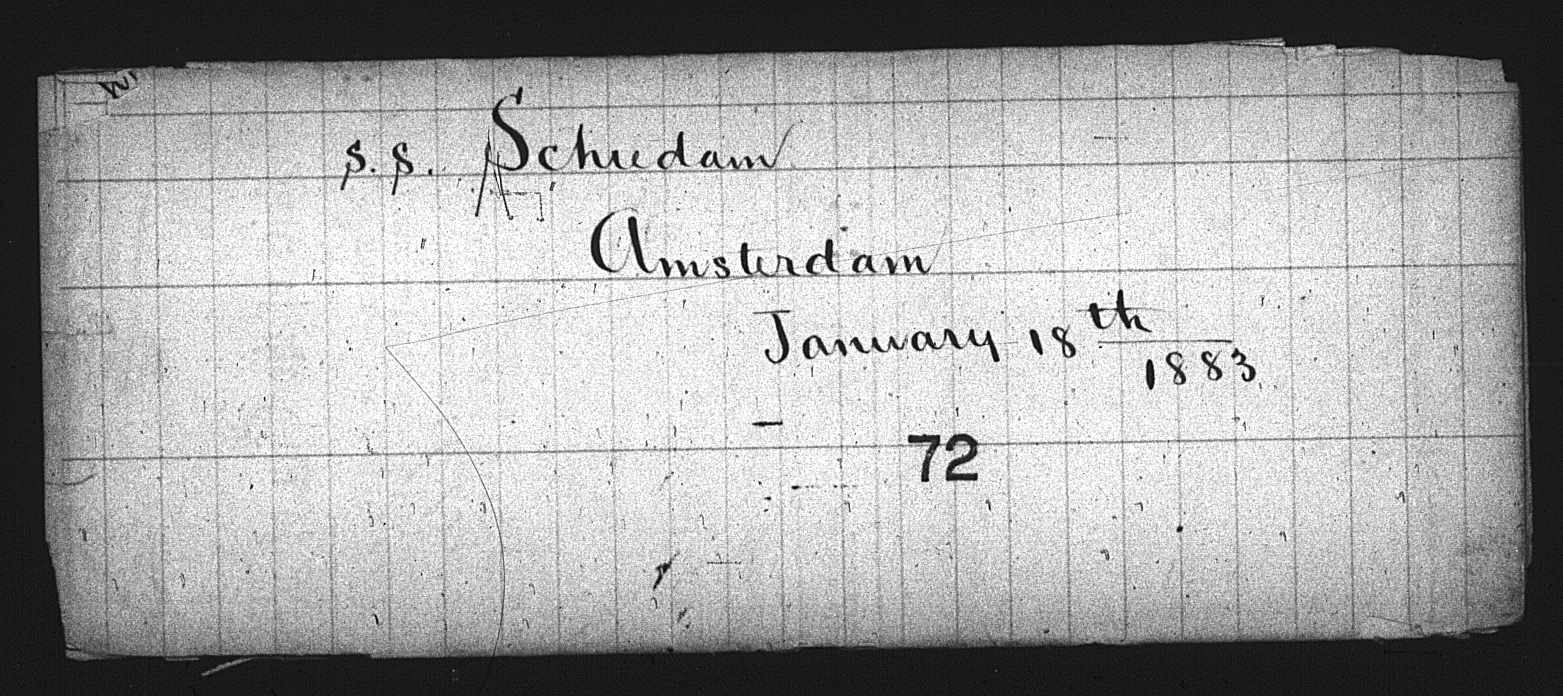 s.s. Schiedam
Amsterdam
January 18th
1883
72